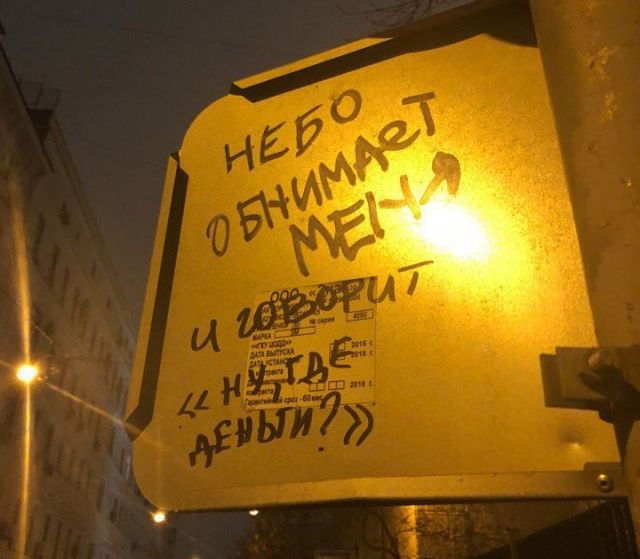 НЕБО
ОБНИМАЕТ
МЕНЯ
И ГОВОРИТ
ООО
№ серии 4090
МАРКА
«ГКУ ЦОДД»
ДАТА ВЫПУСКА 2016 г.
ДАТА УСТАНОВ 2018 г.
2016 г.
Гарантийный срок - 60 мес
«НУ, ГДЕ
ДЕНЬГИ?»